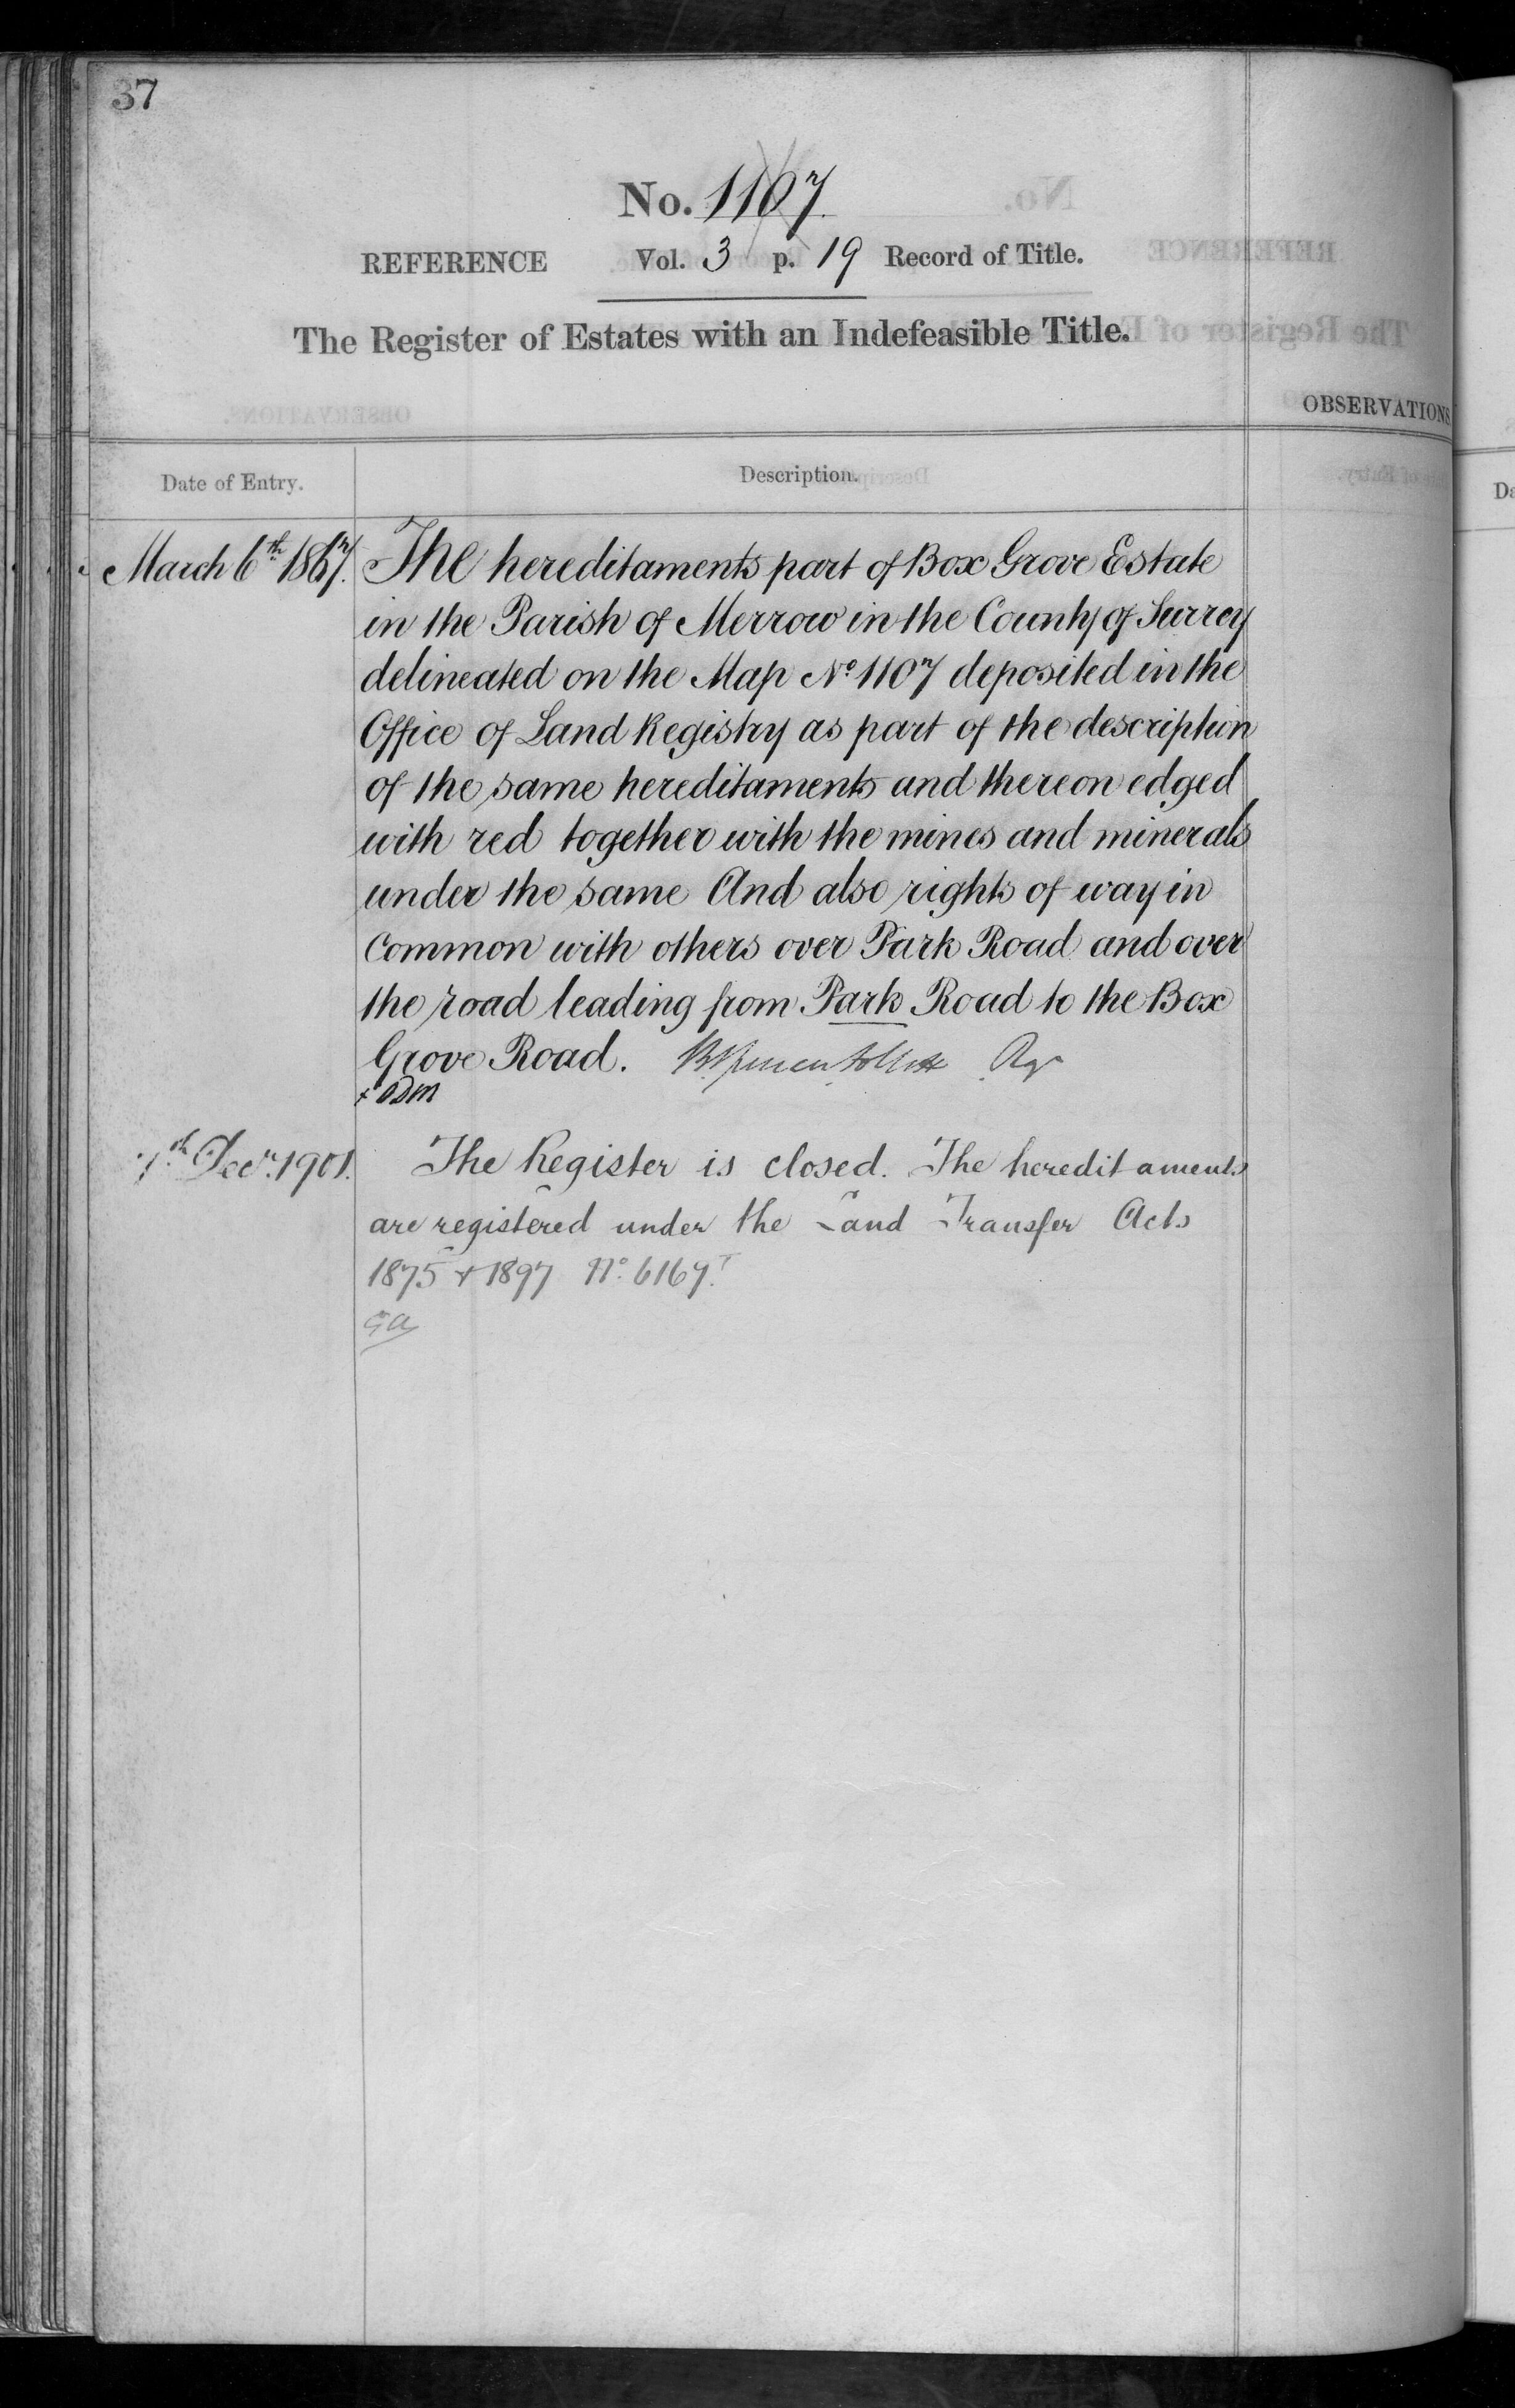 37
No. 1107.
REFERENCE Vol. 3 p. 19 Record of Title.
The Register of Estates with an Indefeasible Title.
OBSERVATIONS
Date of Entry. Description.
March 6th 1867. The hereditaments part of Box Grove Estate
in the Parish of Merrow in the County of Surrey
delineated on the Map No 1107 deposited in the
Office of Land Registry as part of the description
of the same hereditaments and thereon edged
with red together with the mines and minerals
under the same And also rights of way in
Common with others over Park Road and over
the road leading from Park Road to the Box
Grove Road.
Decr. 1901. The Register is closed. The hereditaments
are registered under the Land Transfer Acts
1875 & 1897 No. 6167.